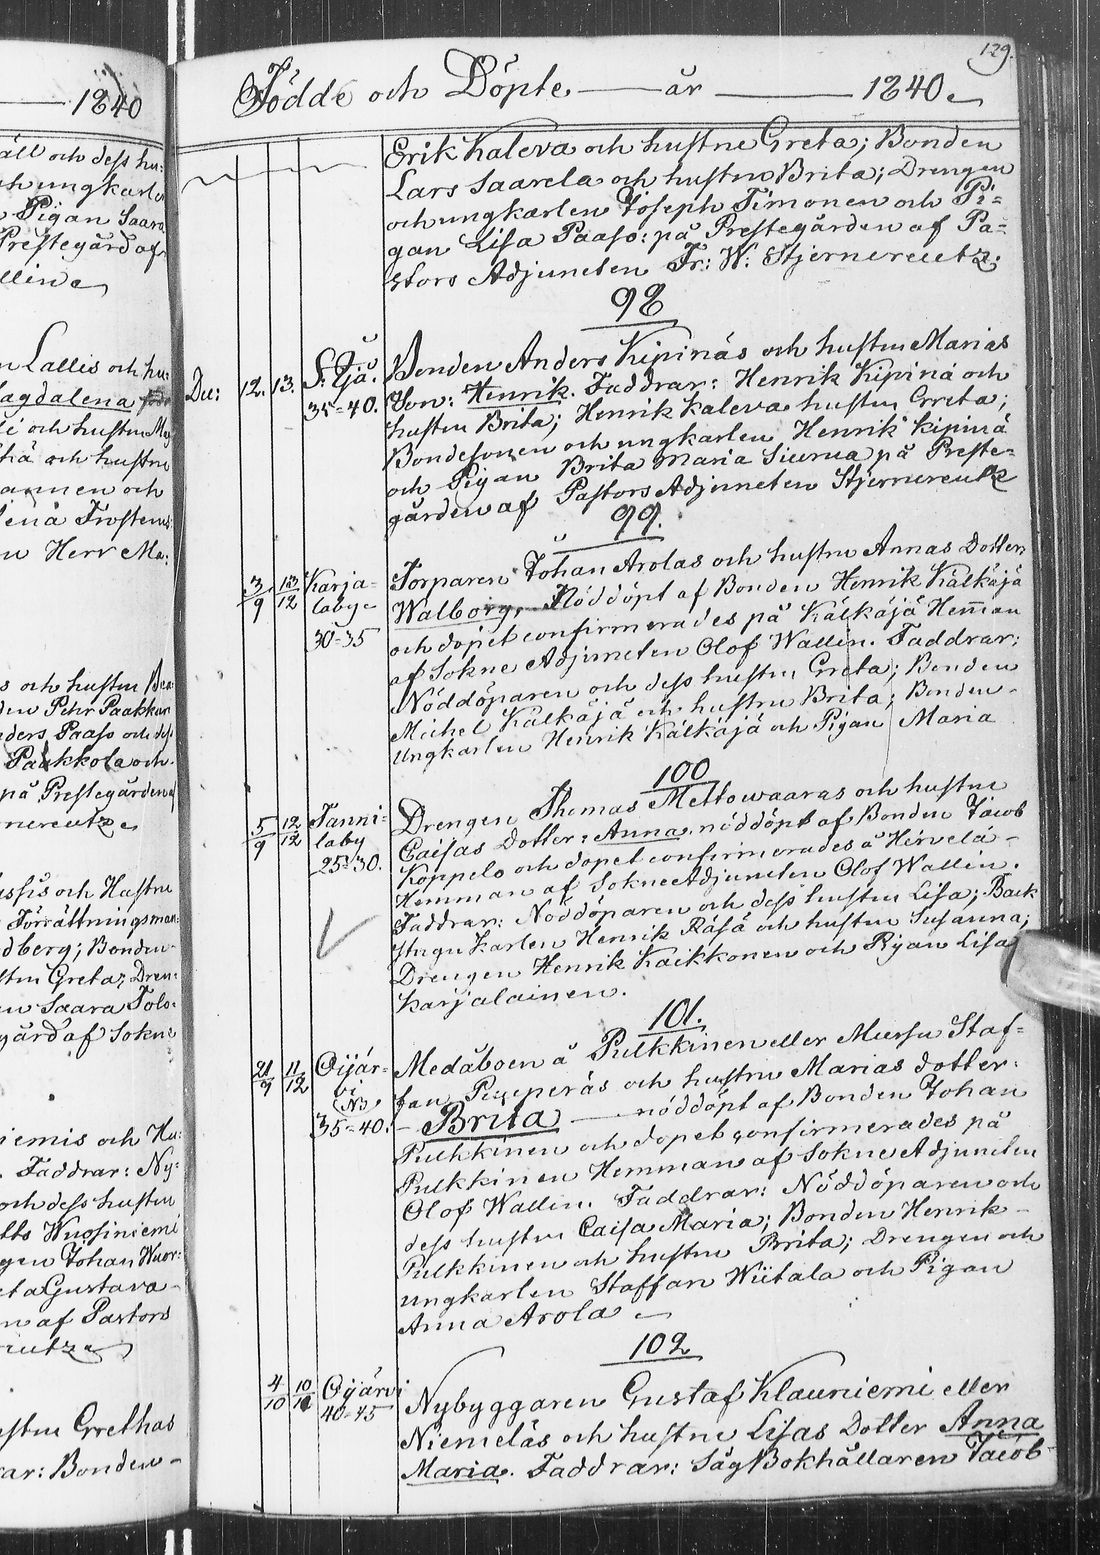 1840
äll och dess hu:
ch ungkarlen
Pigan Saara
Prestegård af
llin
n Lallis och hu:
agdalena
i och hustru
kä och hustru
annen och
lena Frosterus
n Herr Ma:
s och hustru
den Pehr Paakkar
ders Paaso och
Paakkola och
på Prestegården
nereutz
assis och Hustru
Förrättningsman
dberg; Bonden
stru Greta; Dren:
n Saara Tolo:
gård af Sokne
iemis och Hu:
Faddrar: Ny:
och dess hustru
lts Wuosiniemi
gen Johan Wuor:
eta Gustava
n af Pastors
reutz
ustru Grethas
rar: Bonden
129.
Födde och Döpte år 1840
Erik Kaleva och hustru Greta; Bonden
Lars Saarela och hustru Brita; Drengen
och ungkarlen Joseph Timonen och Pi=
gan Lisa Paaso: på Prestegården af Pa=
stors Adjuncten Fr: W: Stjernereutz.
98
Dec: 12. 13. S. Ijä. 35=40.
Bonden Anders Kipinäs och hustru Marias
Son: Henrik. Faddrar: Henrik Kipinä och
hustru Brita; Henrik Kaleva hustru Greta;
Bondesonen och ungkarlen Henrik Kipinä
och Pigan Brita Maria Siurua på Preste=
gården af Pastors Adjuncten Stjernereutz
99.
3/9 13/12 Karja=
laby
30=35
Torparen Johan Arolas och hustru Annas Dotter
Walborg, Nöddöpt af Bonden Henrik Kälkäjä
och dopet confirmerades på Kälkäjä Hem̄an
af Sokne Adjuncten Olof Wallin. Faddrar:
Nöddöparen och dess hustru Greta; Bonden
Michel Kälkäjä och hustru Brita; Bonden
Ungkarlen Henrik Kälkäjä och Pigan Maria
100
5/9 12/12 Tanni=
laby
25=30.
Drengen Thomas Mettowaaras och hustru
Caisas Dotter: Anna nöddöpt af Bonden Jacob
Koppelo och dopet confirmerades å Hirvelä
Hemman af Sokne Adjuncten Olof Wallin.
Faddrar: Nöddöparen och dess hustru Lisa; Back
stugu Karlen Henrik Räsä och hustru Susanna;
Drengen Henrik Kaikkonen och Pigan Lisa
Karjalainen.
101.
21/9 11/12 Oijär=
vi
N3
35=40.
Medåboen å Pulkkinen eller Mursu Staf=
fan Puuperäs och hustru Marias dotter.
Brita nöddöpt af Bonden Johan
Pulkkinen och dopet confirmerades på
Pulkkinen Hemman af Sokne Adjuncten
Olof Wallin. Faddrar: Nöddöparen och
dess hustru Caisa Maria; Bonden Henrik
Pulkkinen och hustru Brita; Drengen och
ungkarlen Staffan Wiitala och Pigan
Anna Arola
102
4/10 10/12 Oijärvi
40=45
Nybyggaren Gustaf Klauniemi eller
Niemeläs och hustru Lisas Dotter Anna
Maria. Faddrar: Såg Bokhållaren Jacob